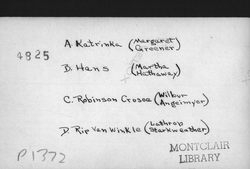 A. Katrinka (Margaret Greener)
4825
B. Hans (Martha Hathaway)
C. Robinson Crusoe (Wilbur Angelmyer)
D. Rip Van Winkle (Lathrop Starkweather)
P1372
MONTCLAIR
LIBRARY